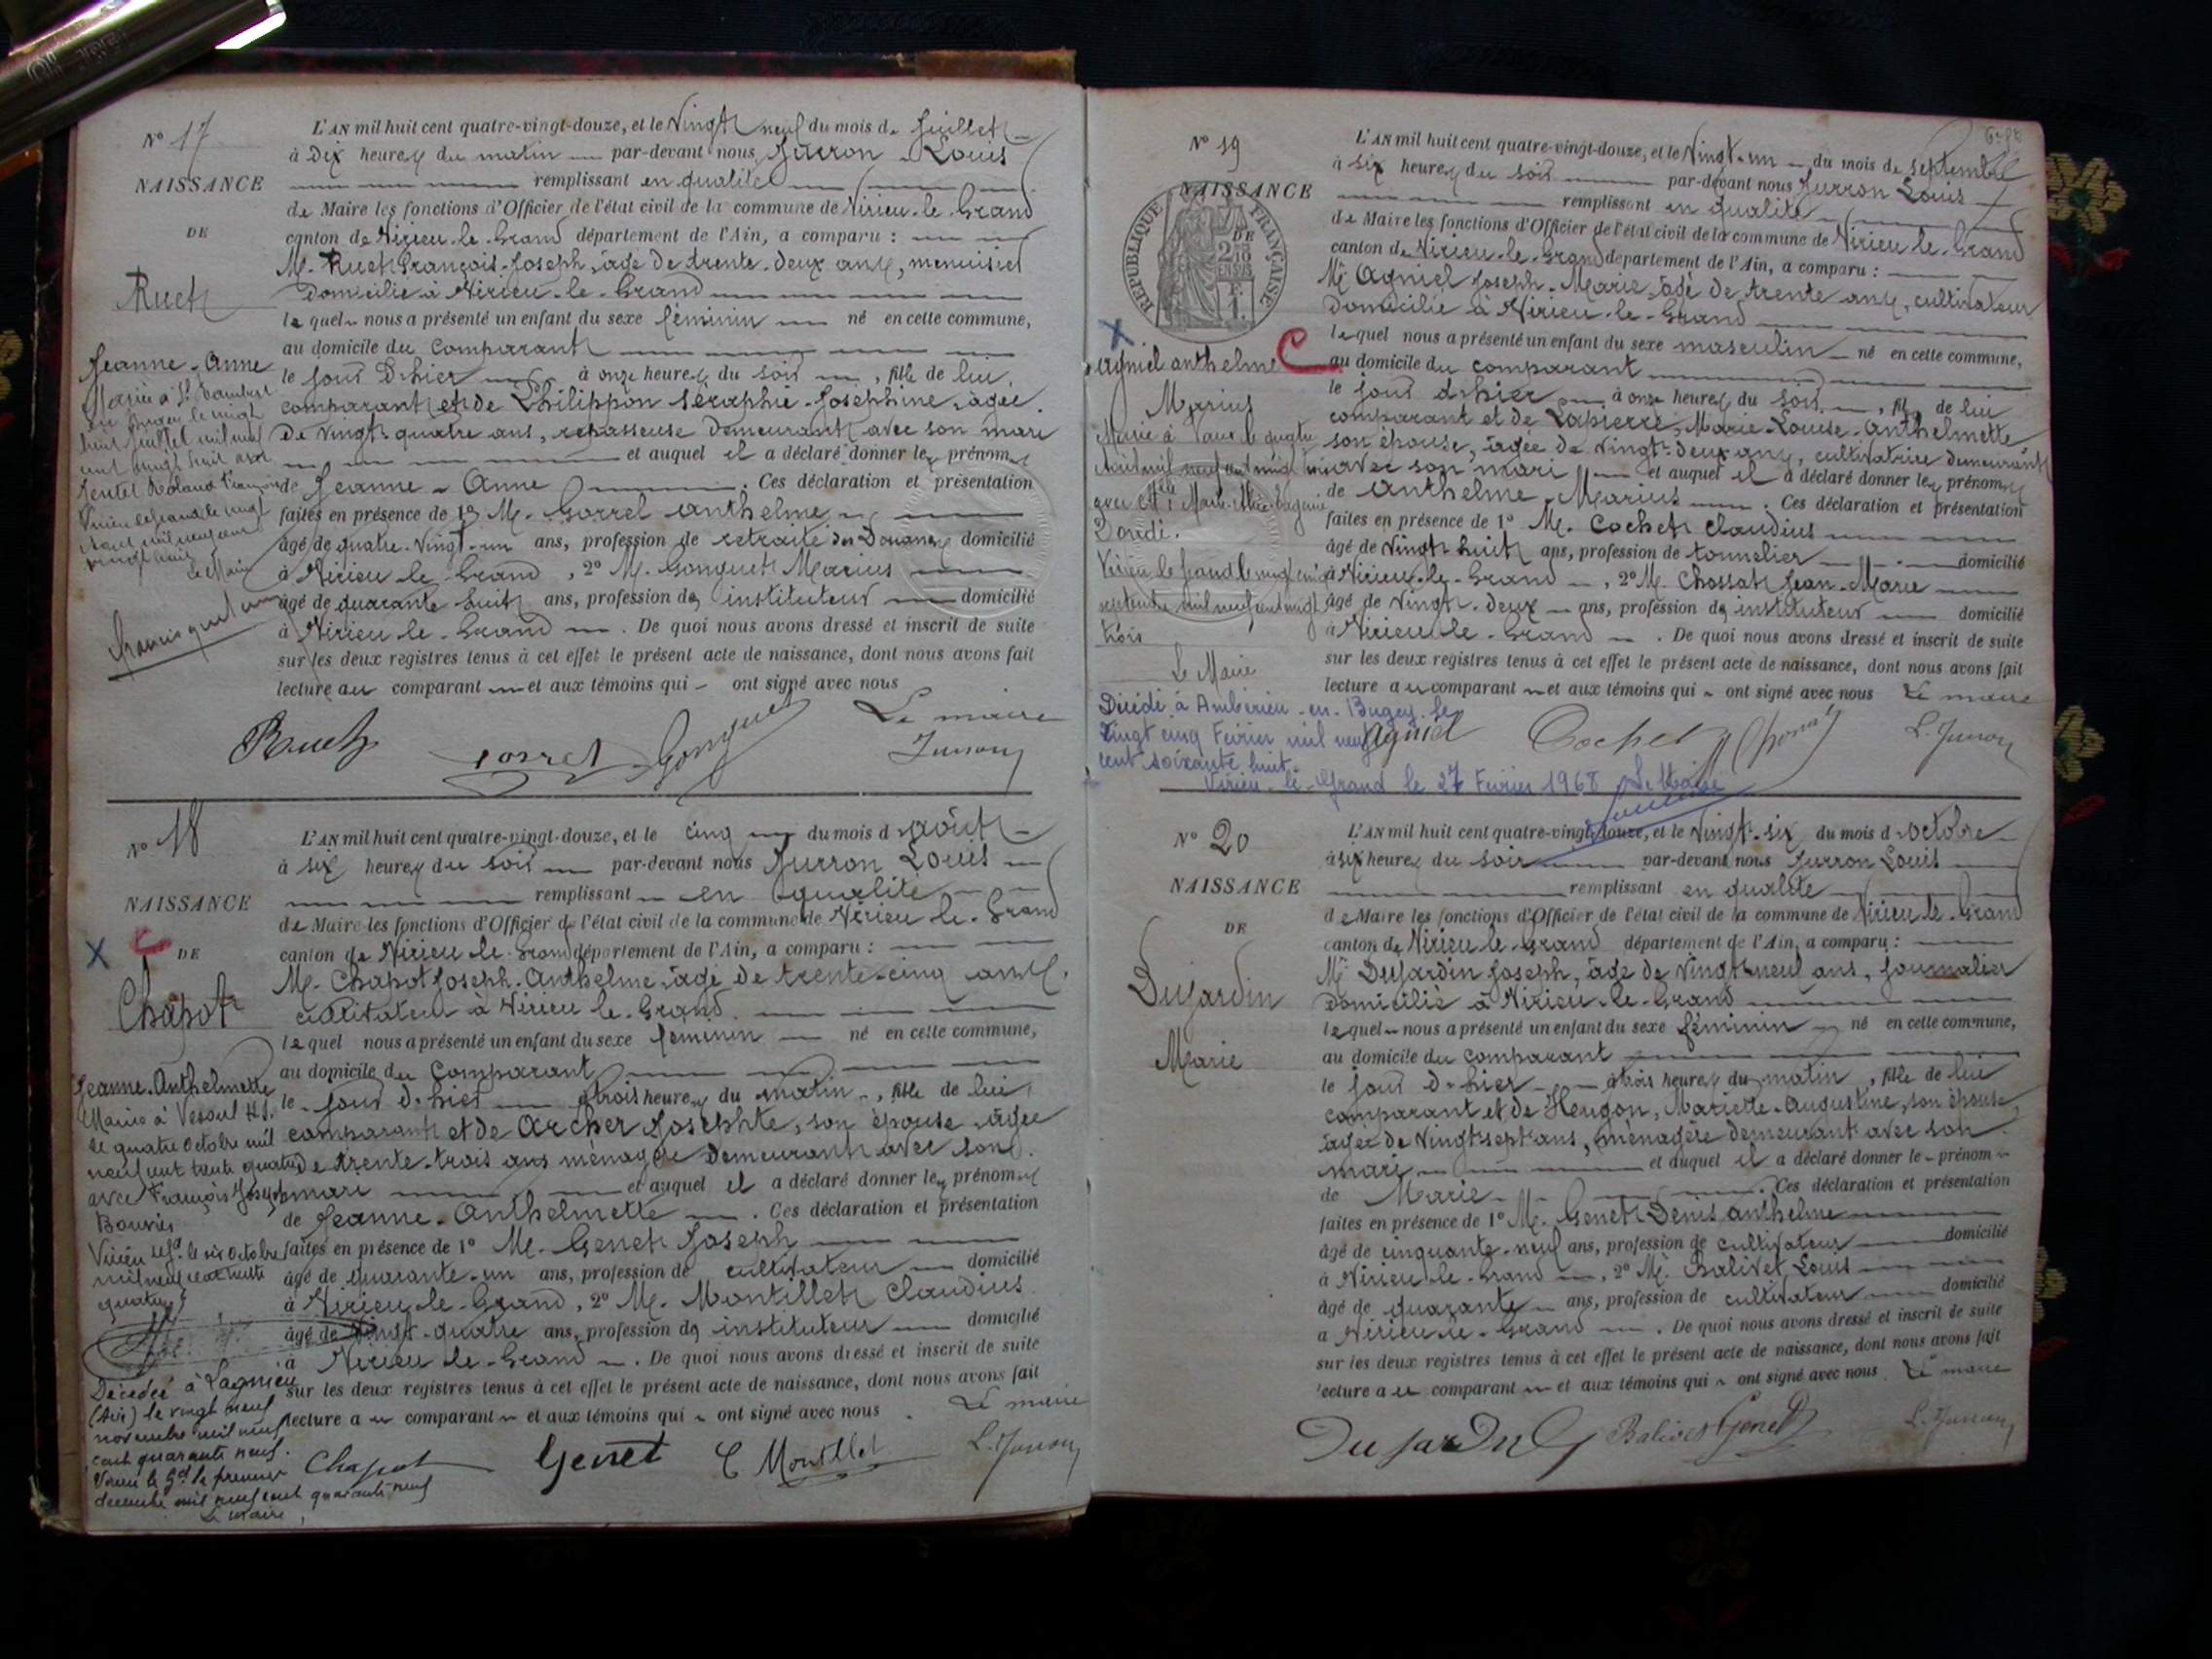 N° 17
NAISSANCE
DE
Ruet
Jeanne-Anne
Mariée à St Rambert
en Bugey le vingt
huit juillet mil neuf
cent vingt huit avec
Virieu le grand le vingt
le Maire
L'AN mil huit cent quatre-vingt-douze, et le Vingt neuf du mois de Juillet
à Dix heures du matin par-devant nous Jurron Louis
remplissant en qualité
de Maire les fonctions d'Officier de l'état civil de la commune de Virieu-le-Grand
canton de Virieu-le-Grand département de l'Ain, a comparu :
M. Ruet François-Joseph, âgé de trente-deux ans, menuisier
domicilié à Virieu-le-Grand
lequel nous a présenté un enfant du sexe féminin né en cette commune,
au domicile du comparant
le jour d'hier à onze heures du soir, fille de lui,
comparant et de Philippon Séraphie-Joséphine, âgée
de vingt-quatre ans, repasseuse demeurant avec son mari
et auquel il a déclaré donner les prénoms
de Jeanne-Anne. Ces déclaration et présentation
faites en présence de 1° M. Gorrel Anthelme
âgé de quatre-vingt-un ans, profession de retraité des Douanes domicilié
à Virieu-le-Grand, 2° M. Gonguet Marius
âgé de quarante huit ans, profession d' instituteur domicilié
à Virieu-le-Grand. De quoi nous avons dressé et inscrit de suite
sur les deux registres tenus à cet effet le présent acte de naissance, dont nous avons fait
lecture au comparant et aux témoins qui ont signé avec nous
Le maire
Ruet Gorrel Gonguet Jurron
N° 18
NAISSANCE
DE
Chapot
Jeanne-Anthelmette
Mariée à Vesoul H.S.
le quatre octobre mil
neuf cent trente quatre
avec François Joseph
Bouvier
Virieu le Gd le six octobre
mil neuf cent trente
quatre
Décédée à Lagnieu
(Ain) le vingt neuf
novembre mil neuf
cent quarante neuf.
Virieu le Gd le premier
décembre mil neuf cent quarante neuf
Le maire,
L'AN mil huit cent quatre-vingt-douze, et le cinq du mois d'août
à six heures du soir par-devant nous Jurron Louis
remplissant en qualité
de Maire les fonctions d'Officier de l'état civil de la commune de Virieu-le-Grand
canton de Virieu-le-Grand département de l'Ain, a comparu :
M. Chapot Joseph-Anthelme, âgé de trente-cinq ans,
cultivateur à Virieu-le-Grand
lequel nous a présenté un enfant du sexe féminin né en cette commune,
au domicile du comparant
le jour d'hier à trois heures du matin, fille de lui,
comparant et de Archer Josephte, son épouse, âgée
de trente-trois ans ménagère demeurant avec son
mari et auquel il a déclaré donner les prénoms
de Jeanne-Anthelmette. Ces déclaration et présentation
faites en présence de 1° M. Genet Joseph
âgé de quarante-un ans, profession de cultivateur domicilié
à Virieu-le-Grand, 2° M. Montillet Claudius
âgé de vingt-quatre ans, profession d' instituteur domicilié
à Virieu-le-Grand. De quoi nous avons dressé et inscrit de suite
sur les deux registres tenus à cet effet le présent acte de naissance, dont nous avons fait
lecture au comparant et aux témoins qui ont signé avec nous. Le maire
Chapot Genet C Montillet L. Jurron
N° 19
NAISSANCE
RÉPUBLIQUE FRANÇAISE
DE
2/10 EN SUS
1 F.
Agniel Anthelme
Marius
Marié à Vaux le quatre
avec Mlle Marie-Alice-Eugénie
Virieu le Grand le vingt cinq
septembre mil neuf cent vingt
trois
Le Maire
Décédé à Ambérieu-en-Bugey le
vingt cinq Février mil neuf
cent soixante huit.
Virieu-le-Grand le 27 Février 1968 Le Maire
L'AN mil huit cent quatre-vingt-douze, et le Vingt-un du mois de septembre
à six heures du soir par-devant nous Jurron Louis
remplissant en qualité
de Maire les fonctions d'Officier de l'état civil de la commune de Virieu-le-Grand
canton de Virieu-le-Grand département de l'Ain, a comparu :
Mr Agniel Joseph-Marie, âgé de trente ans, cultivateur
domicilié à Virieu-le-Grand
lequel nous a présenté un enfant du sexe masculin né en cette commune,
au domicile du comparant
le jour d'hier à onze heures du soir, fils de lui
comparant et de Lapierre, Marie-Louise-Anthelmette
son épouse, âgée de vingt-deux ans, cultivatrice demeurant
avec son mari et auquel il a déclaré donner les prénoms
de Anthelme-Marius. Ces déclaration et présentation
faites en présence de 1° M. Cochet Claudius
âgé de vingt huit ans, profession de tonnelier domicilié
à Virieu-le-Grand, 2° M. Chossat Jean-Marie
âgé de vingt-deux ans, profession d' instituteur domicilié
à Virieu-le-Grand. De quoi nous avons dressé et inscrit de suite
sur les deux registres tenus à cet effet le présent acte de naissance, dont nous avons fait
lecture au comparant et aux témoins qui ont signé avec nous Le maire
Agniel Cochet Chossat L. Jurron
N° 20
NAISSANCE
DE
Dujardin
Marie
L'AN mil huit cent quatre-vingt-douze, et le Vingt-six du mois d'octobre
à six heures du soir par-devant nous Jurron Louis
remplissant en qualité
de Maire les fonctions d'Officier de l'état civil de la commune de Virieu-le-Grand
canton de Virieu-le-Grand département de l'Ain, a comparu :
Mr Dujardin Joseph, âgé de vingt-neuf ans, journalier
domicilié à Virieu-le-Grand
lequel nous a présenté un enfant du sexe féminin né en cette commune,
au domicile du comparant
le jour d'hier à trois heures du matin, fille de lui
comparant et de Heugon, Mariette-Augustine, son épouse,
âgée de vingt-sept ans, ménagère demeurant avec son
mari et auquel il a déclaré donner le prénom
de Marie. Ces déclaration et présentation
faites en présence de 1° M. Genet Denis Anthelme
âgé de cinquante-neuf ans, profession de cultivateur domicilié
à Virieu-le-Grand, 2° M. Balivet Louis
âgé de quarante ans, profession de cultivateur domicilié
à Virieu-le-Grand. De quoi nous avons dressé et inscrit de suite
sur les deux registres tenus à cet effet le présent acte de naissance, dont nous avons fait
lecture au comparant et aux témoins qui ont signé avec nous. Le maire
Dujardin Balivet Genet L. Jurron